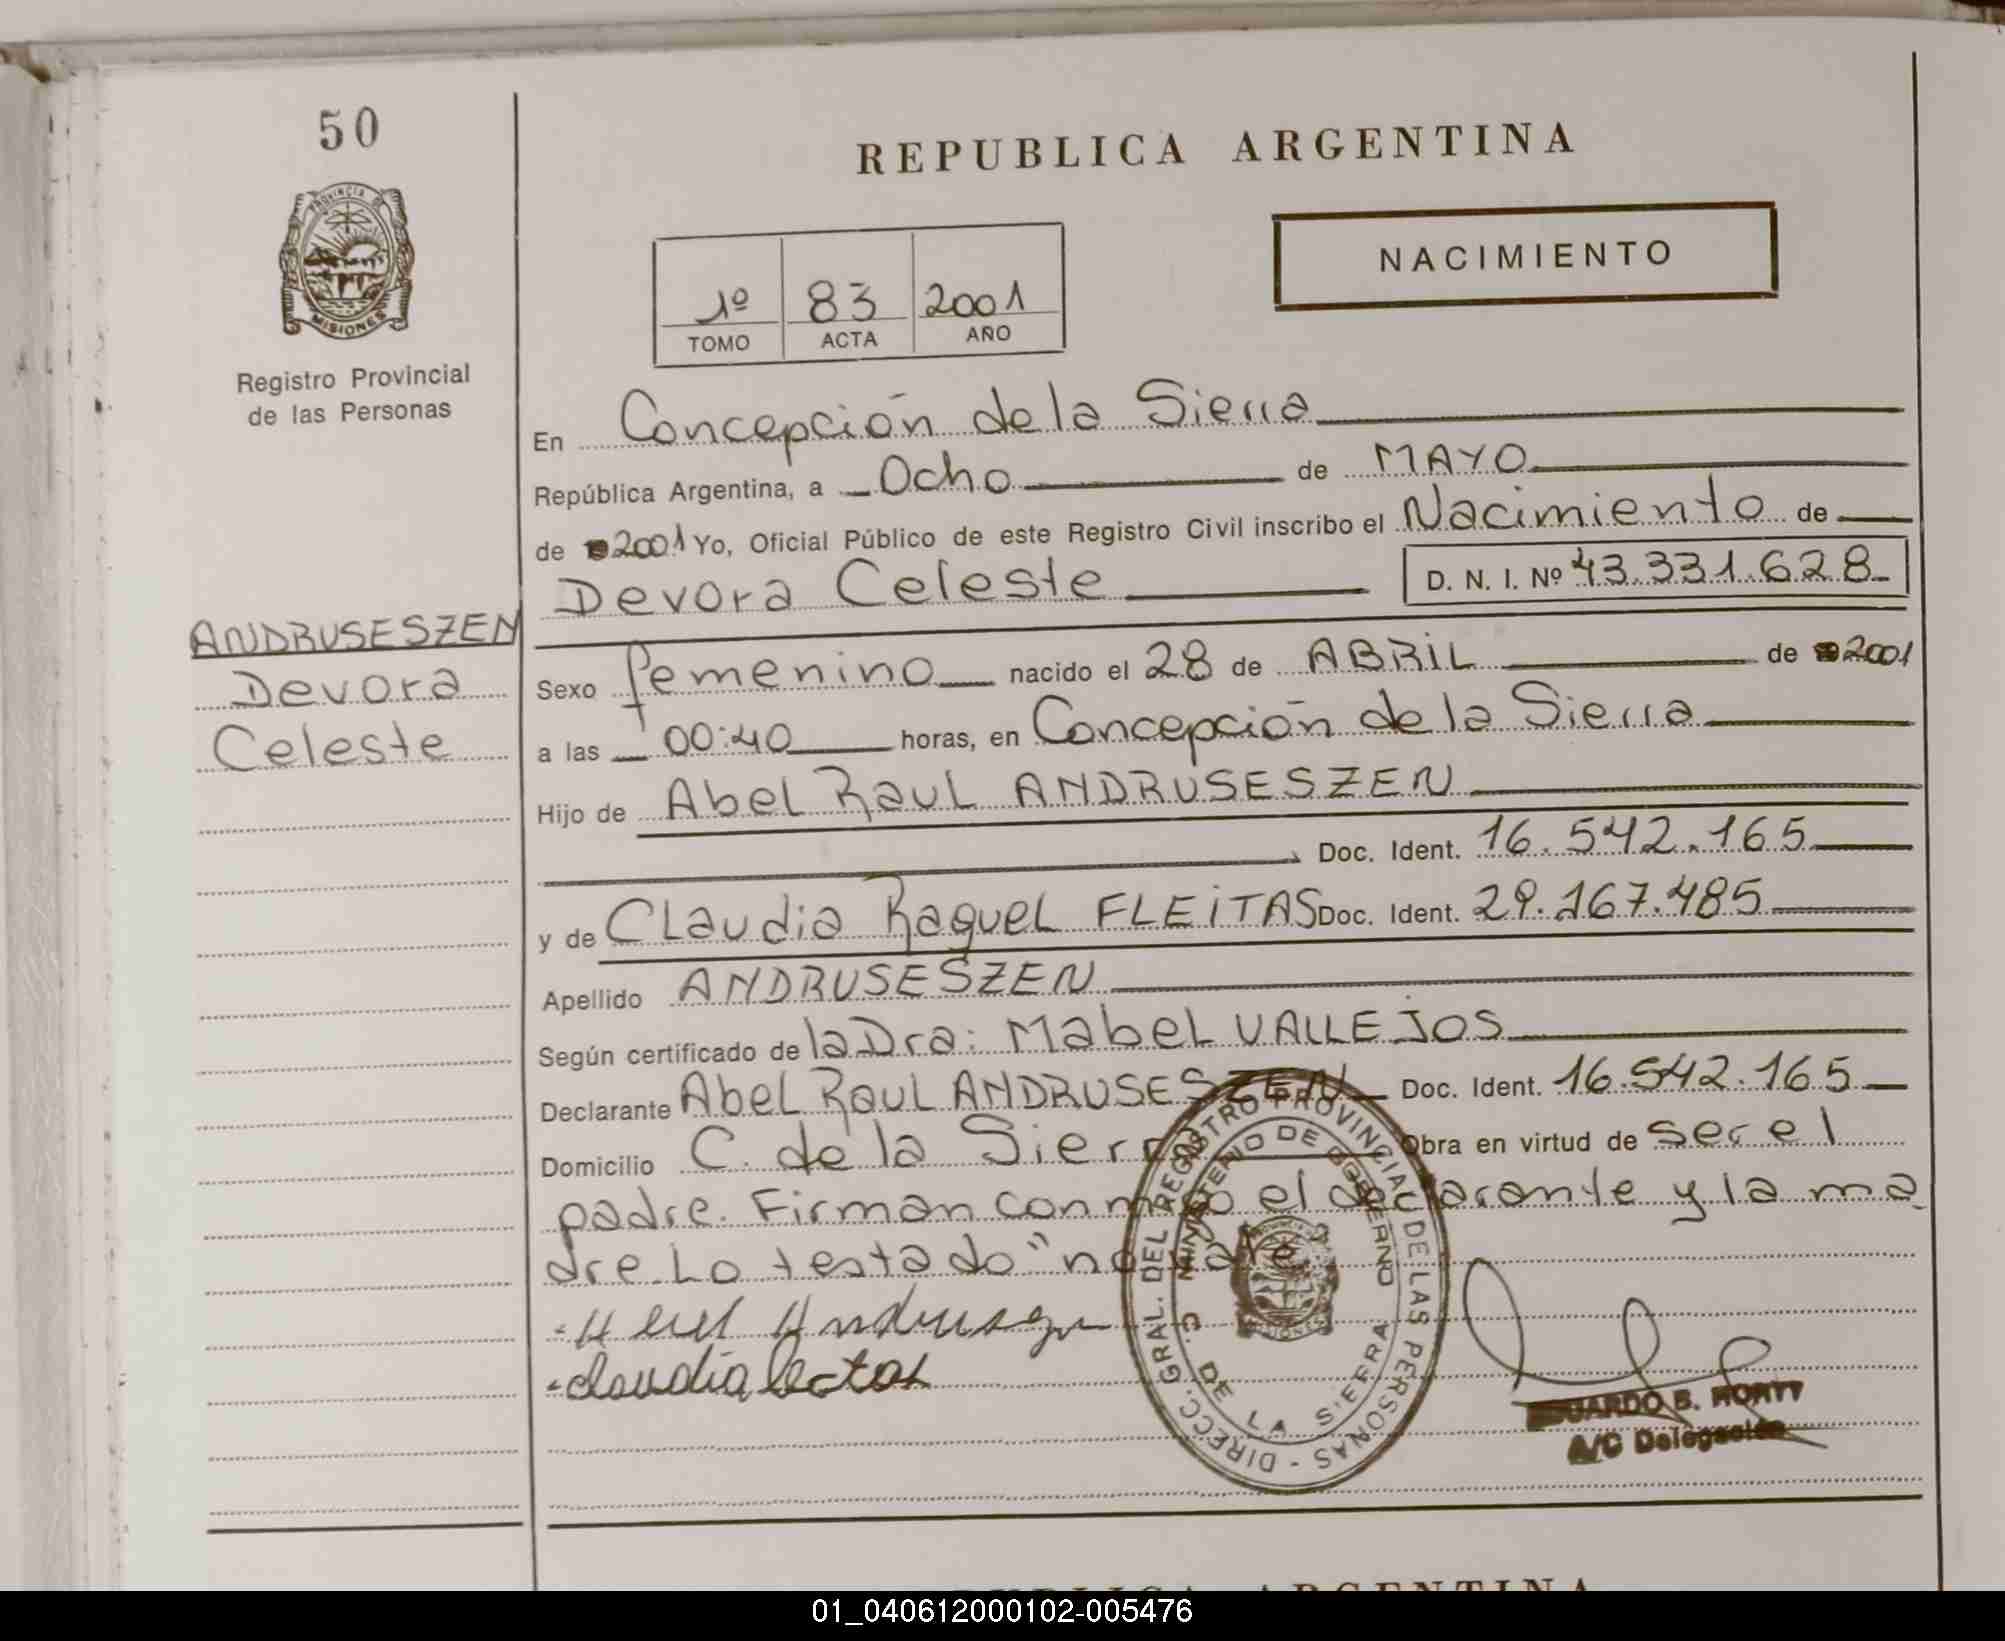 50
PROVINCIA DE
MISIONES
Registro Provincial
de las Personas
ANDRUSESZEN
Devora
Celeste
REPUBLICA ARGENTINA
NACIMIENTO
1º 83 2001
TOMO ACTA AÑO
En Concepción de la Sierra
República Argentina, a Ocho de MAYO
de 2001 Yo, Oficial Público de este Registro Civil inscribo el Nacimiento de
Devora Celeste D. N. I. Nº 43.331.628
Sexo femenino nacido el 28 de ABRiL de 2001
a las 00:40 horas, en Concepción de la Sierra
Hijo de Abel Raul ANDRUSESZEN
Doc. Ident. 16.542.165
y de Claudia Raquel FLEiTAS Doc. Ident. 29.167.485
Apellido ANDRUSESZEN
Según certificado de la Dra: Mabel VALLEJOS
Declarante Abel Raul ANDRUSESZEN Doc. Ident. 16.542.165
Domicilio C. de la Sierra Obra en virtud de ser el
padre. Firman conmigo el declarante y la ma
dre. Lo testado "no vale
Claudia
DIRECC. GRAL. DEL REGISTRO PROVINCIAL DE LAS PERSONAS -
MINISTERIO DE GOBIERNO
C. DE LA SIERRA
MISIONES
EDUARDO B.
A/C Delegación
REPUBLICA ARGENTINA
01_040612000102-005476